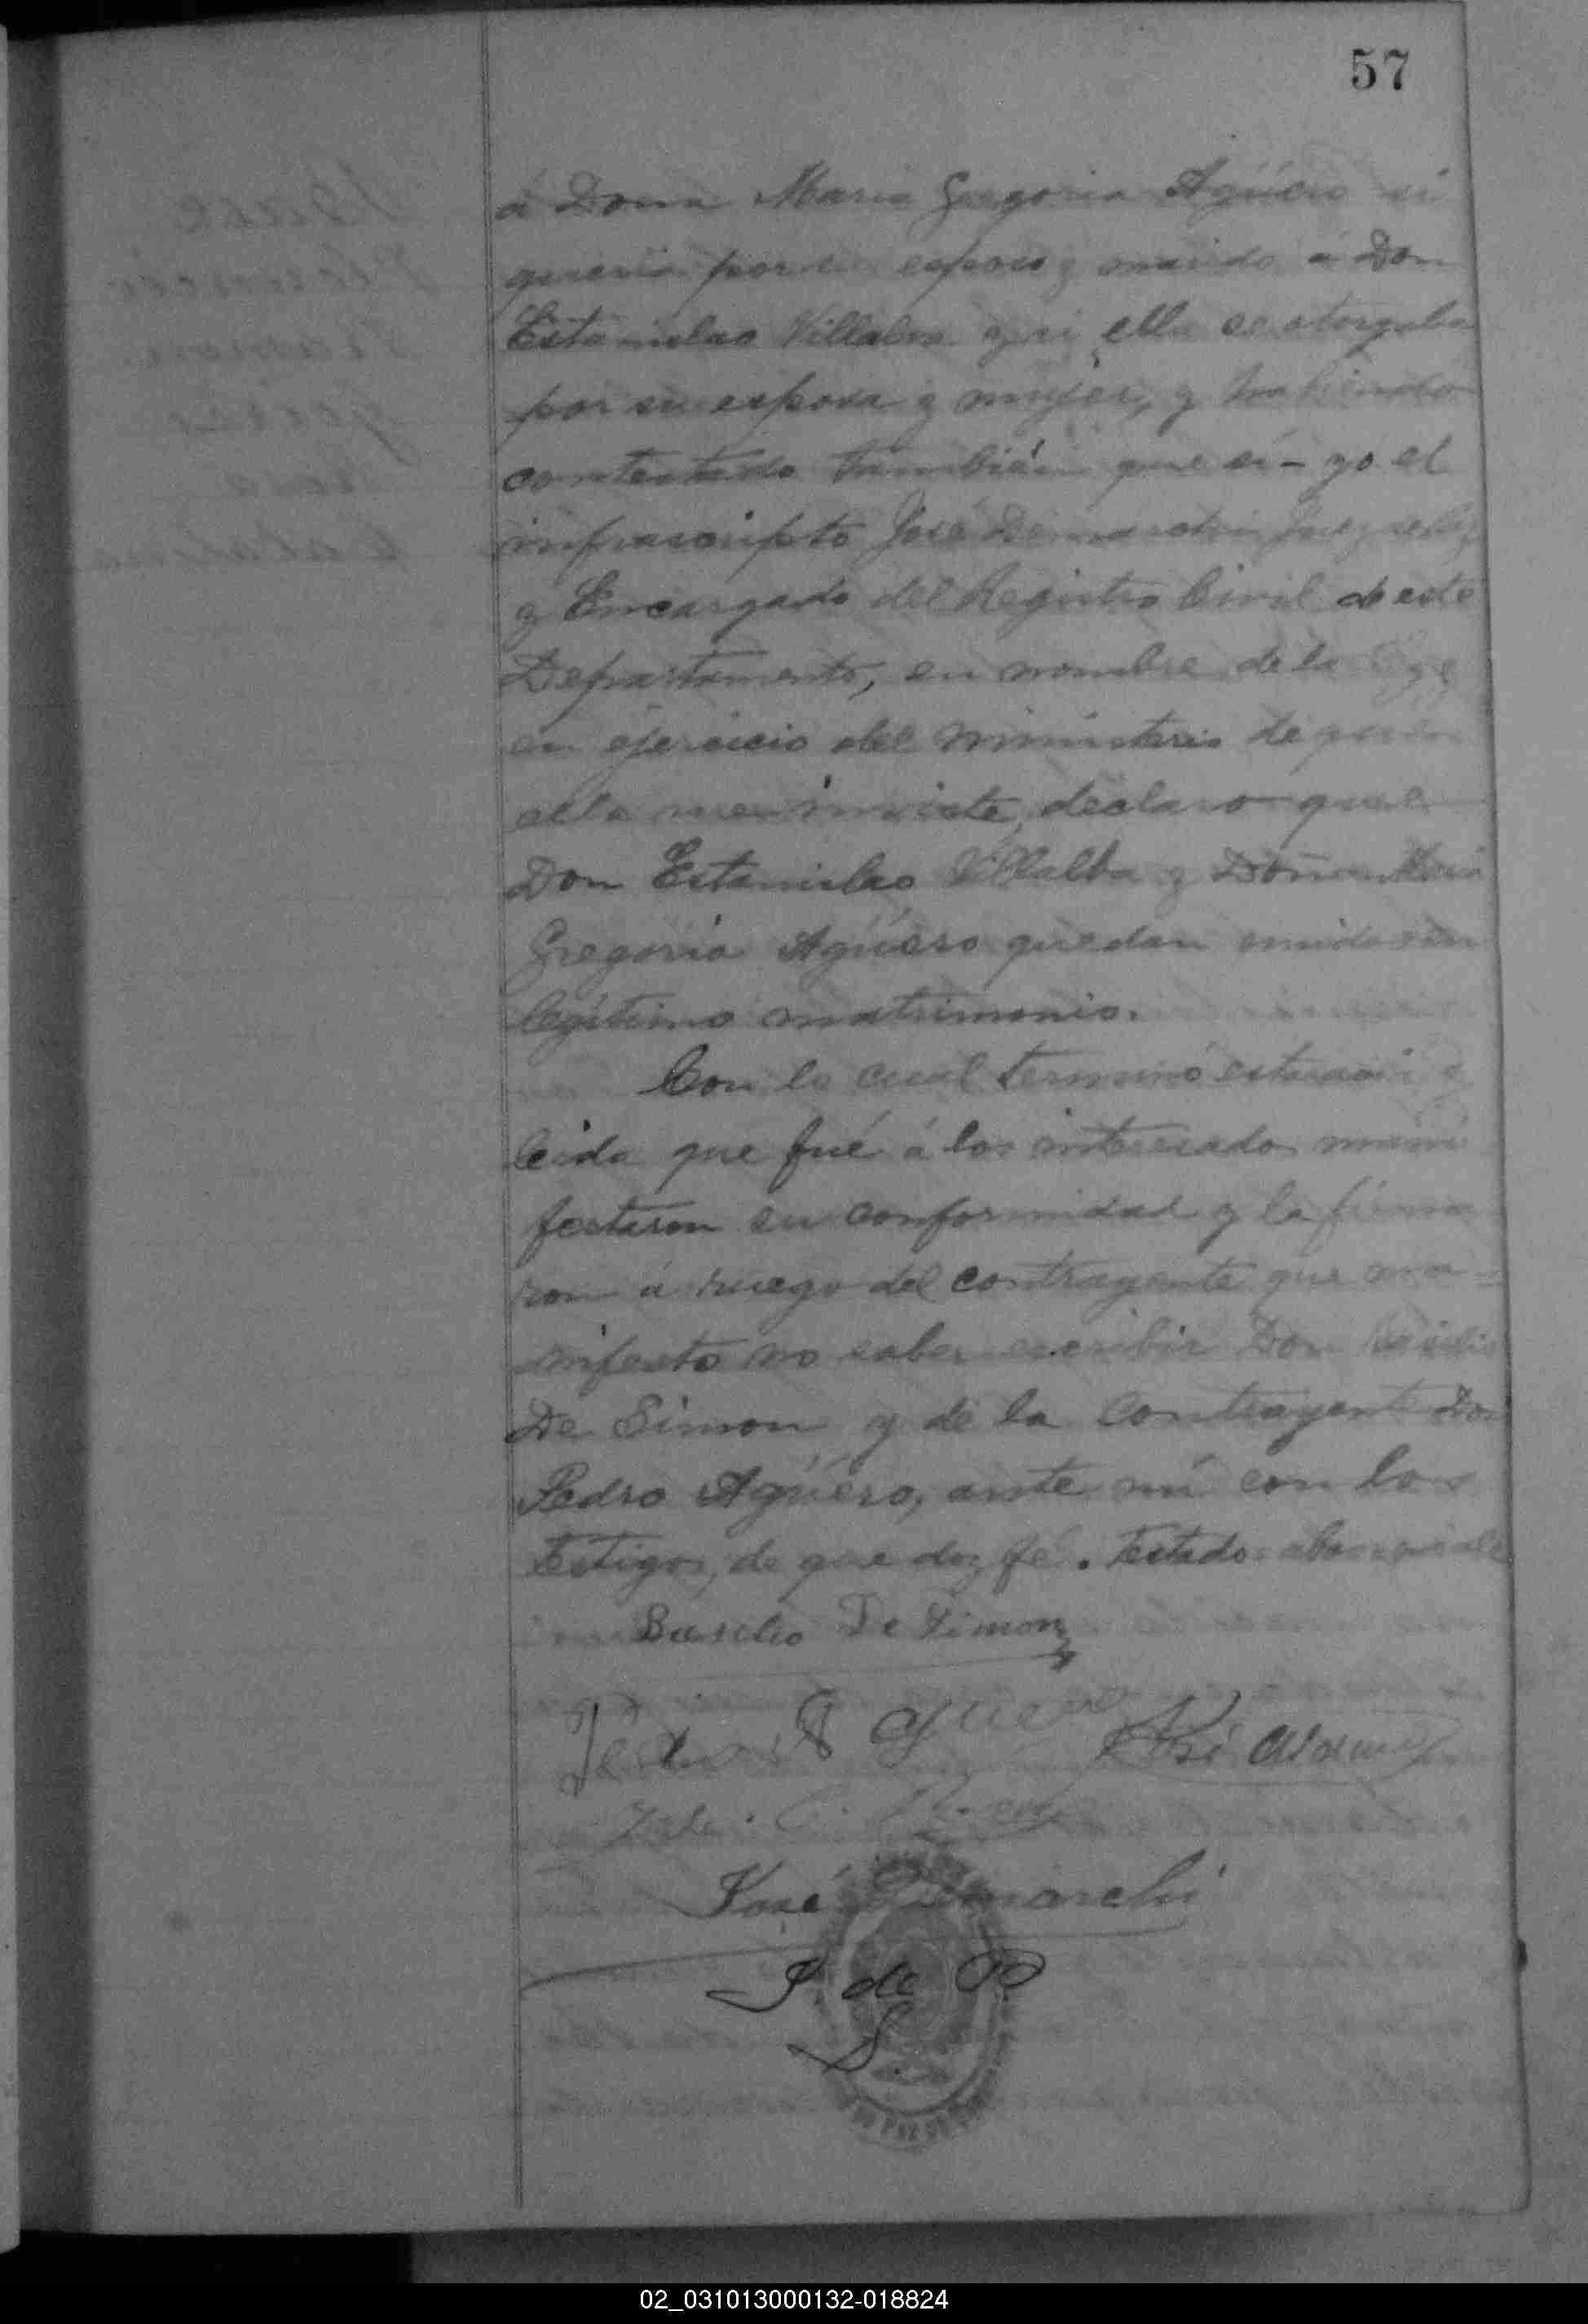 57
á Doña Maria Gregoria Agüero si
queria por su esposo y marido á Don
Estanislao Villalba y si ella se otorgaba
por su esposa y mujer, y habiendo
contestado también que sí - yo el
infrascripto José Demarchi Juez
y Encargado del Registro Civil de este
Departamento, en nombre de la Ley y
en ejercicio del ministerio de que
ella me inviste, declaro que
Don Estanislao Villalba y Doña Maria
Gregoria Agüero quedan unidos en
legítimo matrimonio.
Con lo cual terminó esta acta y
leida que fué á los interesados mani
festaron su conformidad y la firma
ron á ruego del contrayente que ma-
nifesto no saber escribir Don Basilio
De Simon y de la contrayente Don
Pedro Agüero, ante mí con los
testigos, de que doy fé. Testado
Basilio De Simon
Pedro Agüero José
José Demarchi
J. de P
S.
02_031013000132-018824